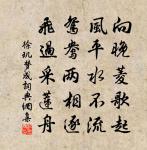 向晚菱歌起
風平水不流
鴛鴦兩相逐
飛過采蓮舟
徐玑 詞典網集